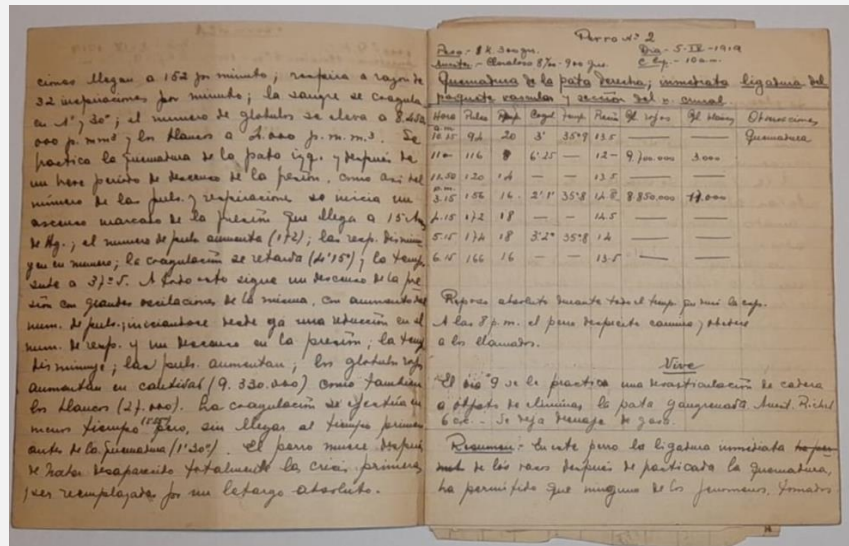 ciones llegan a 152 por minuto; respira a razón de
32 inspiraciones por minuto; la sangre se coagula
en 1', 30"; el numero de globulos se eleva a 8.450
000 p. mm³ y los blancos a 4.000 p. m.m.³. Se
practica la quemadura de la pata izq. y después de
un breve período de descenso de la presión, como asi del
número de las puls. y respiraciones se inicia un
ascenso marcado de la presión que llega a 15
de Hg.; el numero de puls aumenta (172); las resp. disminu
yen en numero; la coagulación se retarda (4'15"); la temp.
sube a 37º5. A todo esto sigue un descenso de la pre
sión con grandes oscilaciones de la misma, con aumento del
num. de puls.; iniciandose desde ya una reducción en el
num. de resp. y un descenso en la presión; la temp.
disminuye; las puls. aumentan; los globulos rojos
aumentan en cantidad (9.330.000) como tambien
los blancos (27.000). La coagulación se efectúa en
menos tiempo pero, sin llegar al tiempo primero
antes de la quemadura (1'30"). El perro muere después
de haber desaparecido totalmente la primera
y ser reemplazada por un letargo absoluto.
Perro Nº 2
Peso.- 8 k. 300 grs. Dia.- 5-IX-1919
Cloralosa 900 grs. C. Exp.- 10 a.m.
Quemadura de la pata derecha; inmediata ligadura del
paquete vascular y sección del n. crural.
Hora Pulso Resp Coagul Temp Presión Gl. rojos Gl. blancos Observaciones
a.m.
10.35 94 20 3' 35º9 13.5 Quemadura
11 116 8 6'25 — 12 9.700.000 3.000
11.50 120 14 — — 13.5 — —
p.m.
3.15 156 16 2'1" 35º8 14.8 8.850.000 17.000
4.15 172 18 — — 14.5 — —
5.15 174 18 3'2" 35º8 14 — —
6.15 166 16 — — 13.5 — —
Reposo absoluto durante todo el temp. que duró la exp.
A las 8 p.m. el perro despierto camina y obedece
a los llamados.
Vive
El dia 9 se le practica una desarticulación de cadera
a objeto de eliminar la pata gangrenada. Anest. Richet
6 c.c. - Se deja drenaje de gasa.
Resumen:- En este perro la ligadura inmediata
de los vasos después de practicada la quemadura,
ha permitido que ninguno de los fenomenos, tomados